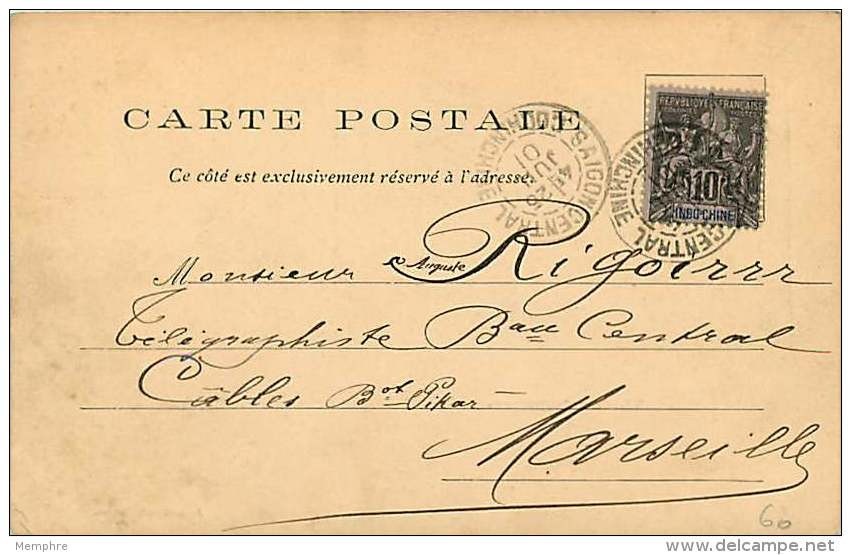 CARTE POSTALE
Ce côté est exclusivement réservé à l'adresse.
REPUBLIQUE FRANÇAISE
10
INDO-CHINE
SAIGON CENTRAL
COCHINCHINE
26
JUIL
01
CENTRAL
CHINE
Monsieur Auguste Rigoirrr
Télégraphiste Bau Central
Câbles Bot Pikar
Marseille
60
Memphre
www.delcampe.net